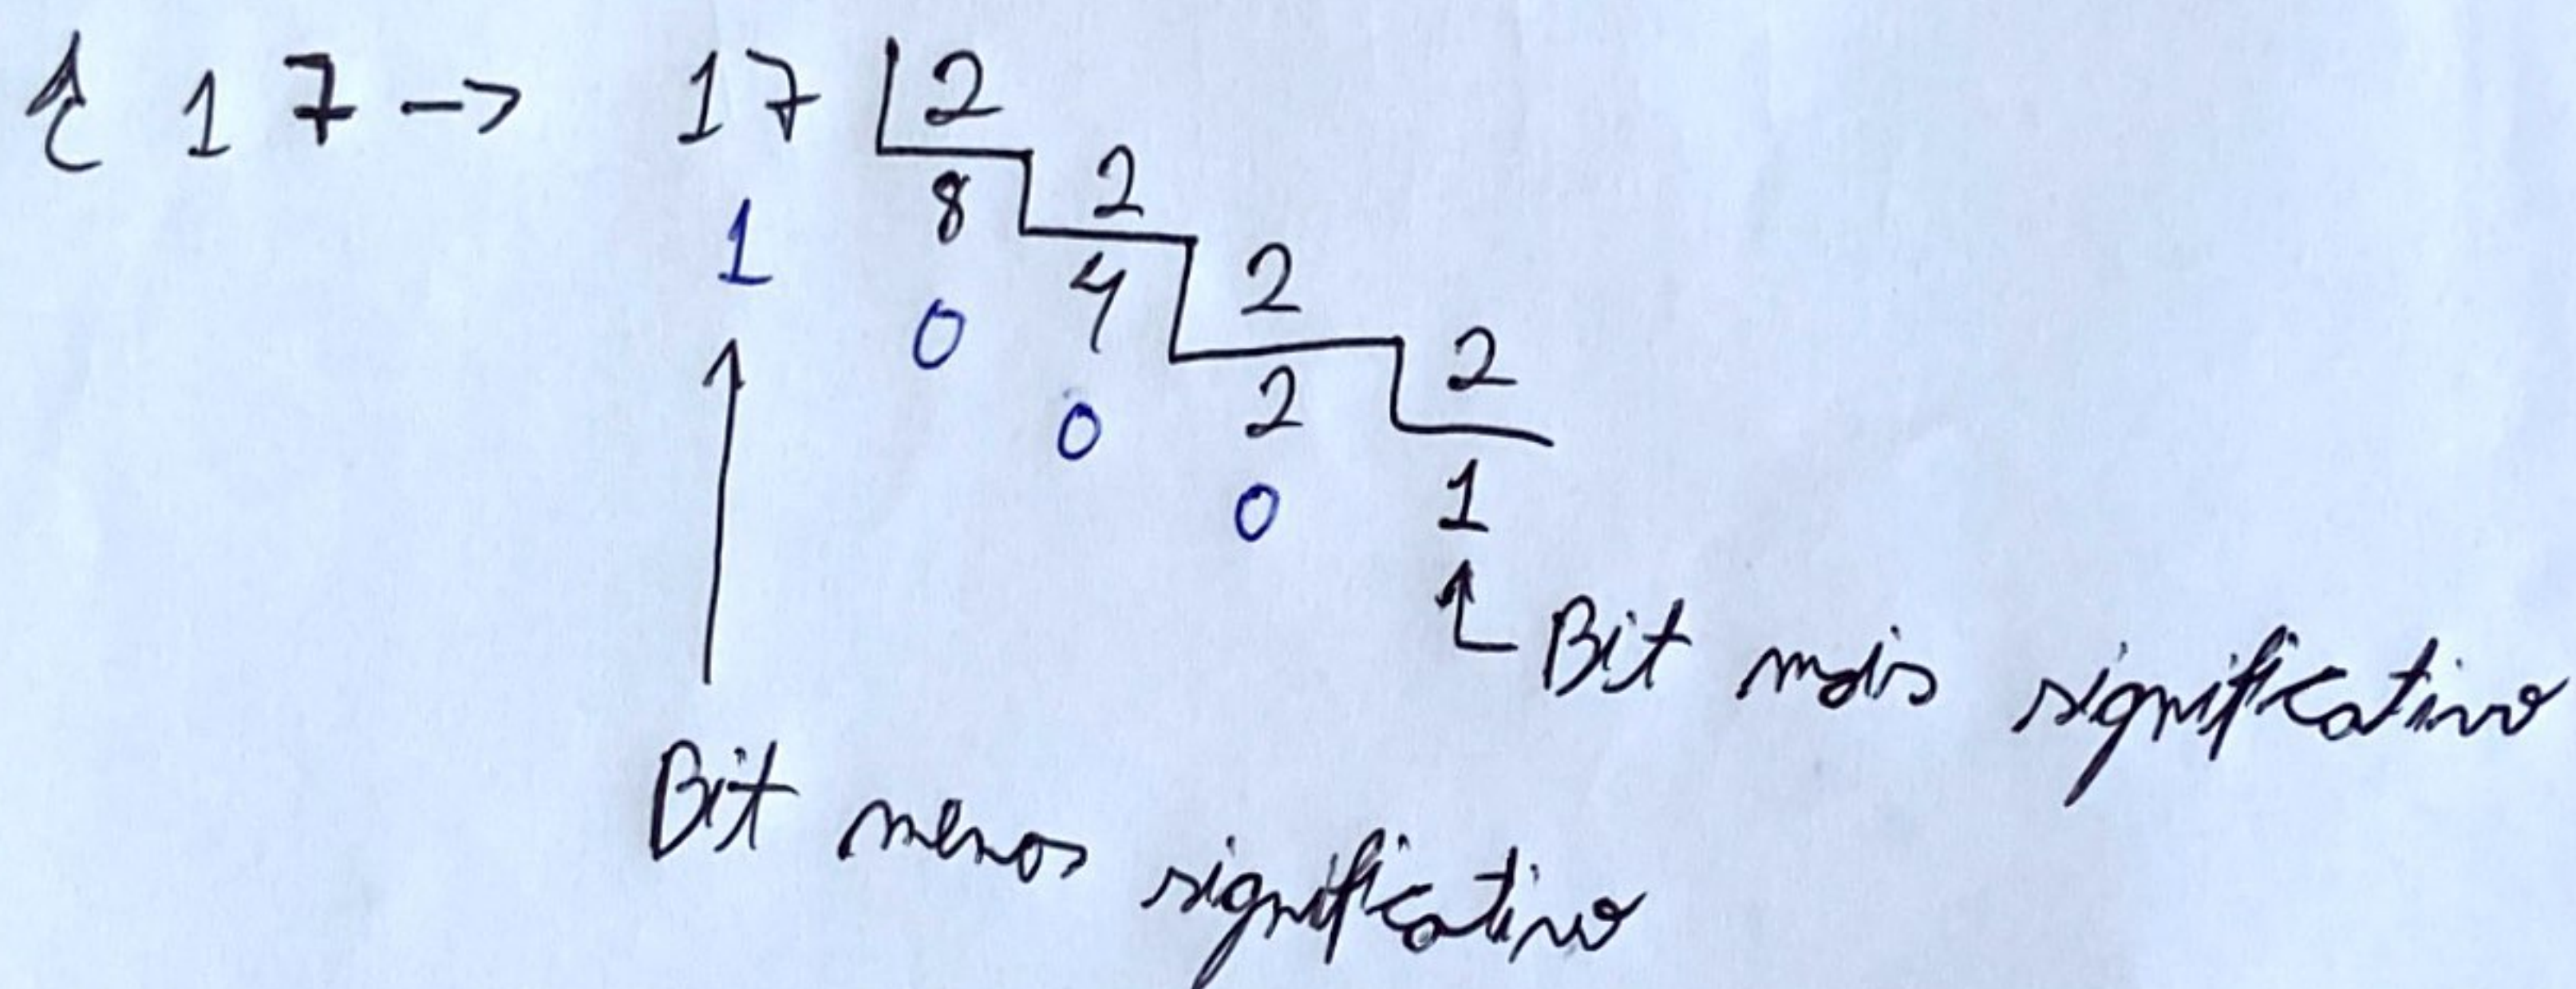 { 17 -> 17 2
8 2
1 4 2
0 2 2
0 1
0
Bit mais significativo
Bit menos significativo